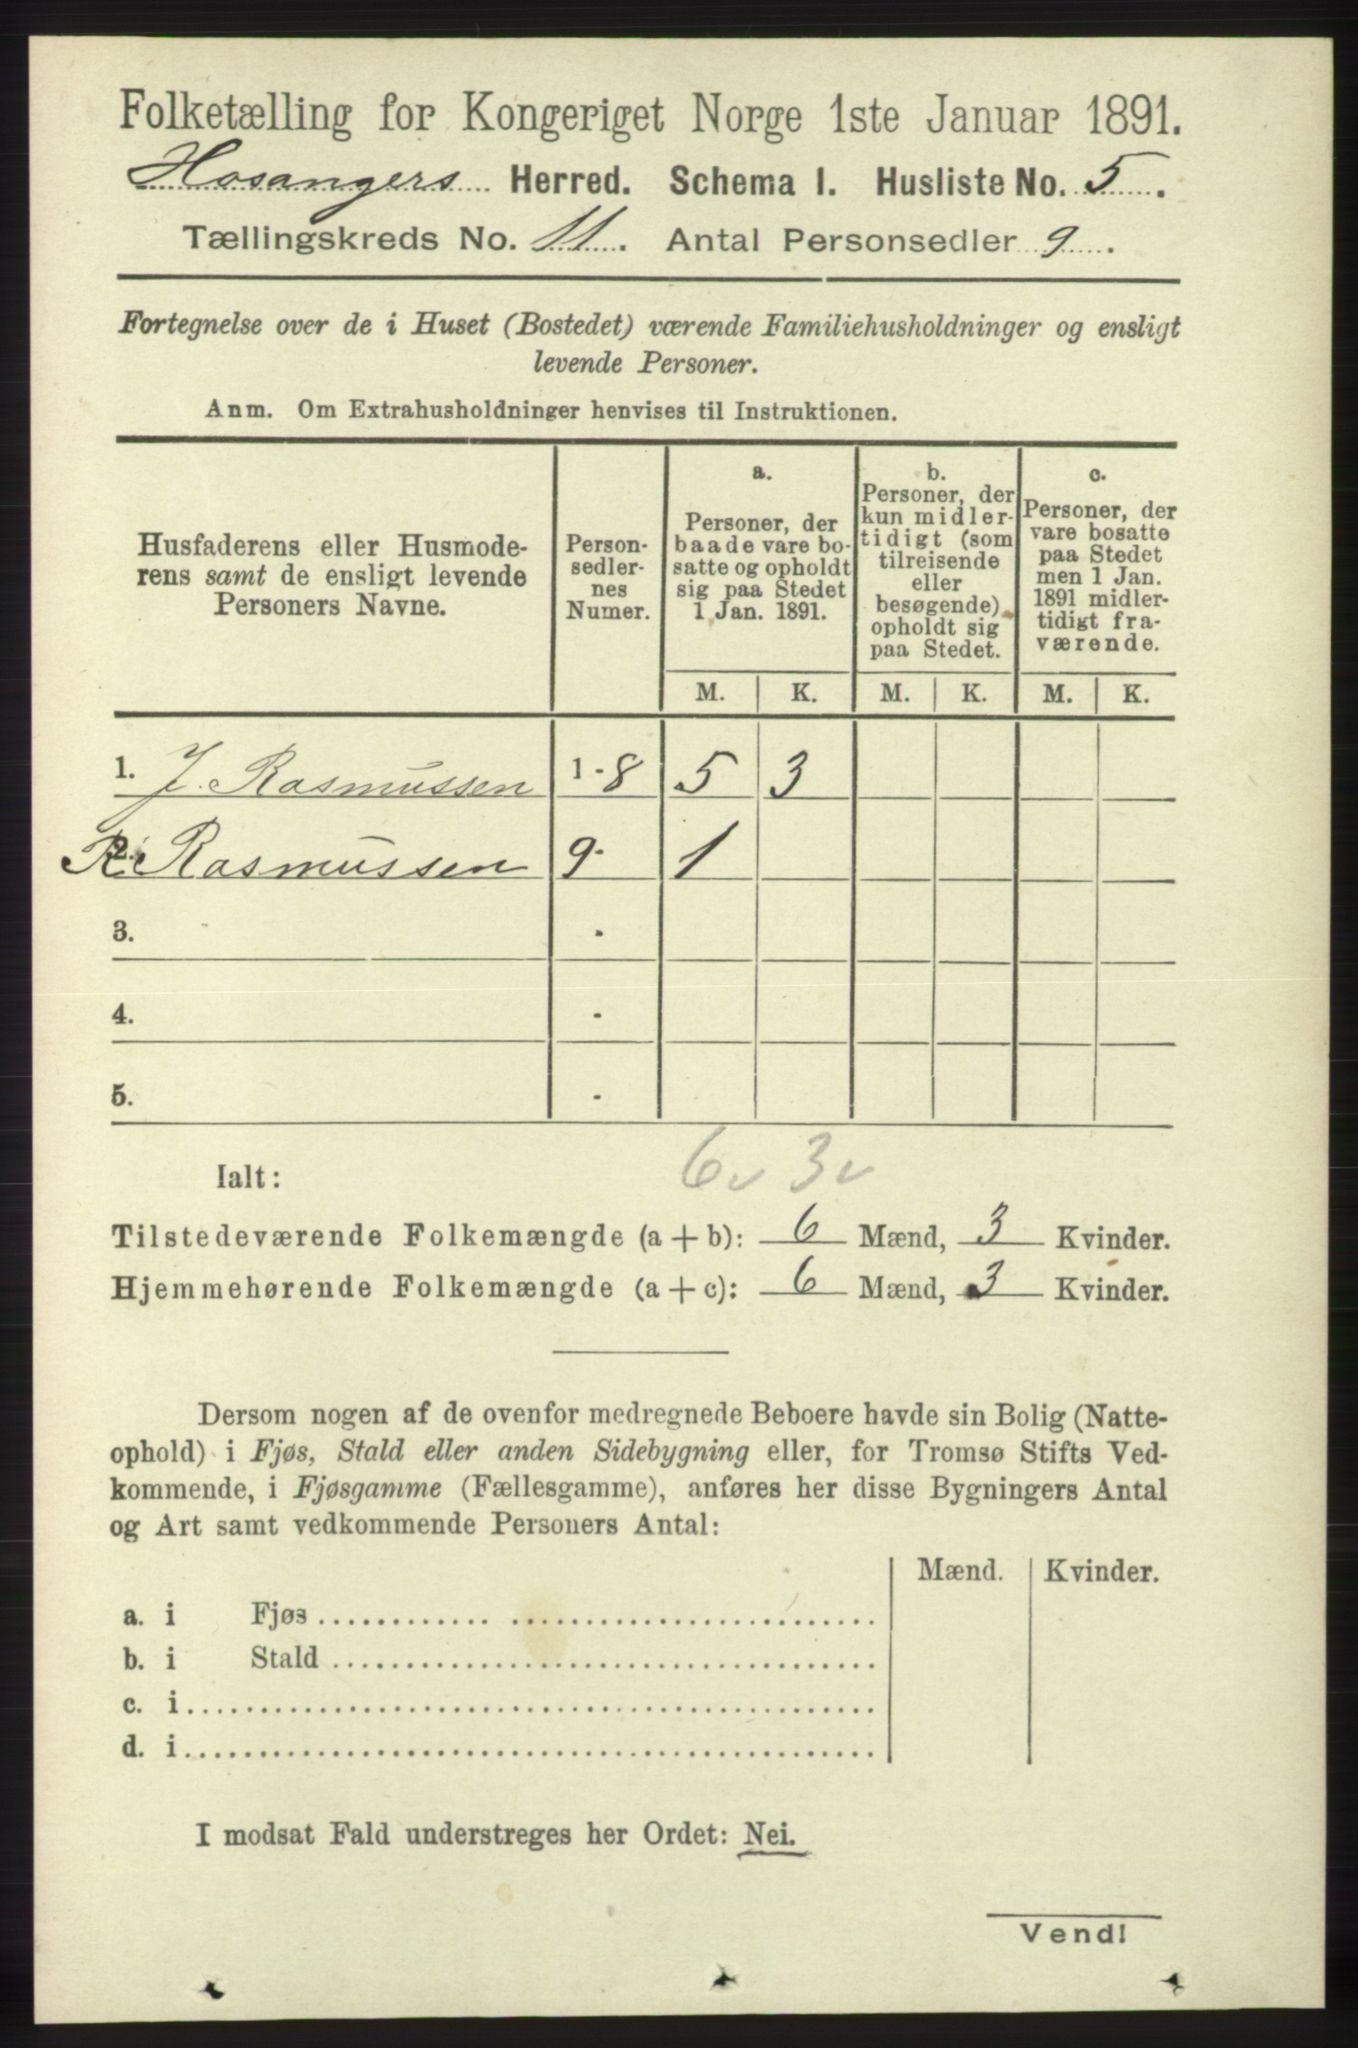 Folketælling for Kongeriget Norge 1ste Januar 1891.
Hosangers Herred. Schema I. Husliste No. 5.
Tællingskreds No. 11. Antal Personsedler 9.
Fortegnelse over de i Huset (Bostedet) værende Familiehusholdninger og ensligt
levende Personer.
Anm. Om Extrahusholdninger henvises til Instruktionen.
Husfaderens eller Husmode-
rens samt de ensligt levende
Personers Navne.
Person-
sedler-
nes
Numer.
a.
Personer, der
baade vare bo-
satte og opholdt
sig paa Stedet
1 Jan. 1891.
b.
Personer, der
kun midler-
tidigt (som
tilreisende
eller
besøgende)
opholdt sig
paa Stedet.
c.
Personer, der
vare bosatte
paa Stedet
men 1 Jan.
1891 midler-
tidigt fra-
værende.
M. K. M. K. M. K.
1. J. Rasmussen 1-8 5 3
2. R. Rasmussen 9- 1
3. -
4. -
5. -
Ialt: 6 3
Tilstedeværende Folkemængde (a + b): 6 Mænd, 3 Kvinder.
Hjemmehørende Folkemængde (a + c): 6 Mænd, 3 Kvinder.
Dersom nogen af de ovenfor medregnede Beboere havde sin Bolig (Natte-
ophold) i Fjøs, Stald eller anden Sidebygning eller, for Tromsø Stifts Ved-
kommende, i Fjøsgamme (Fællesgamme), anføres her disse Bygningers Antal
og Art samt vedkommende Personers Antal:
Mænd. Kvinder.
a. i Fjøs
b. i Stald
c. i
d. i
I modsat Fald understreges her Ordet: Nei.
Vend!